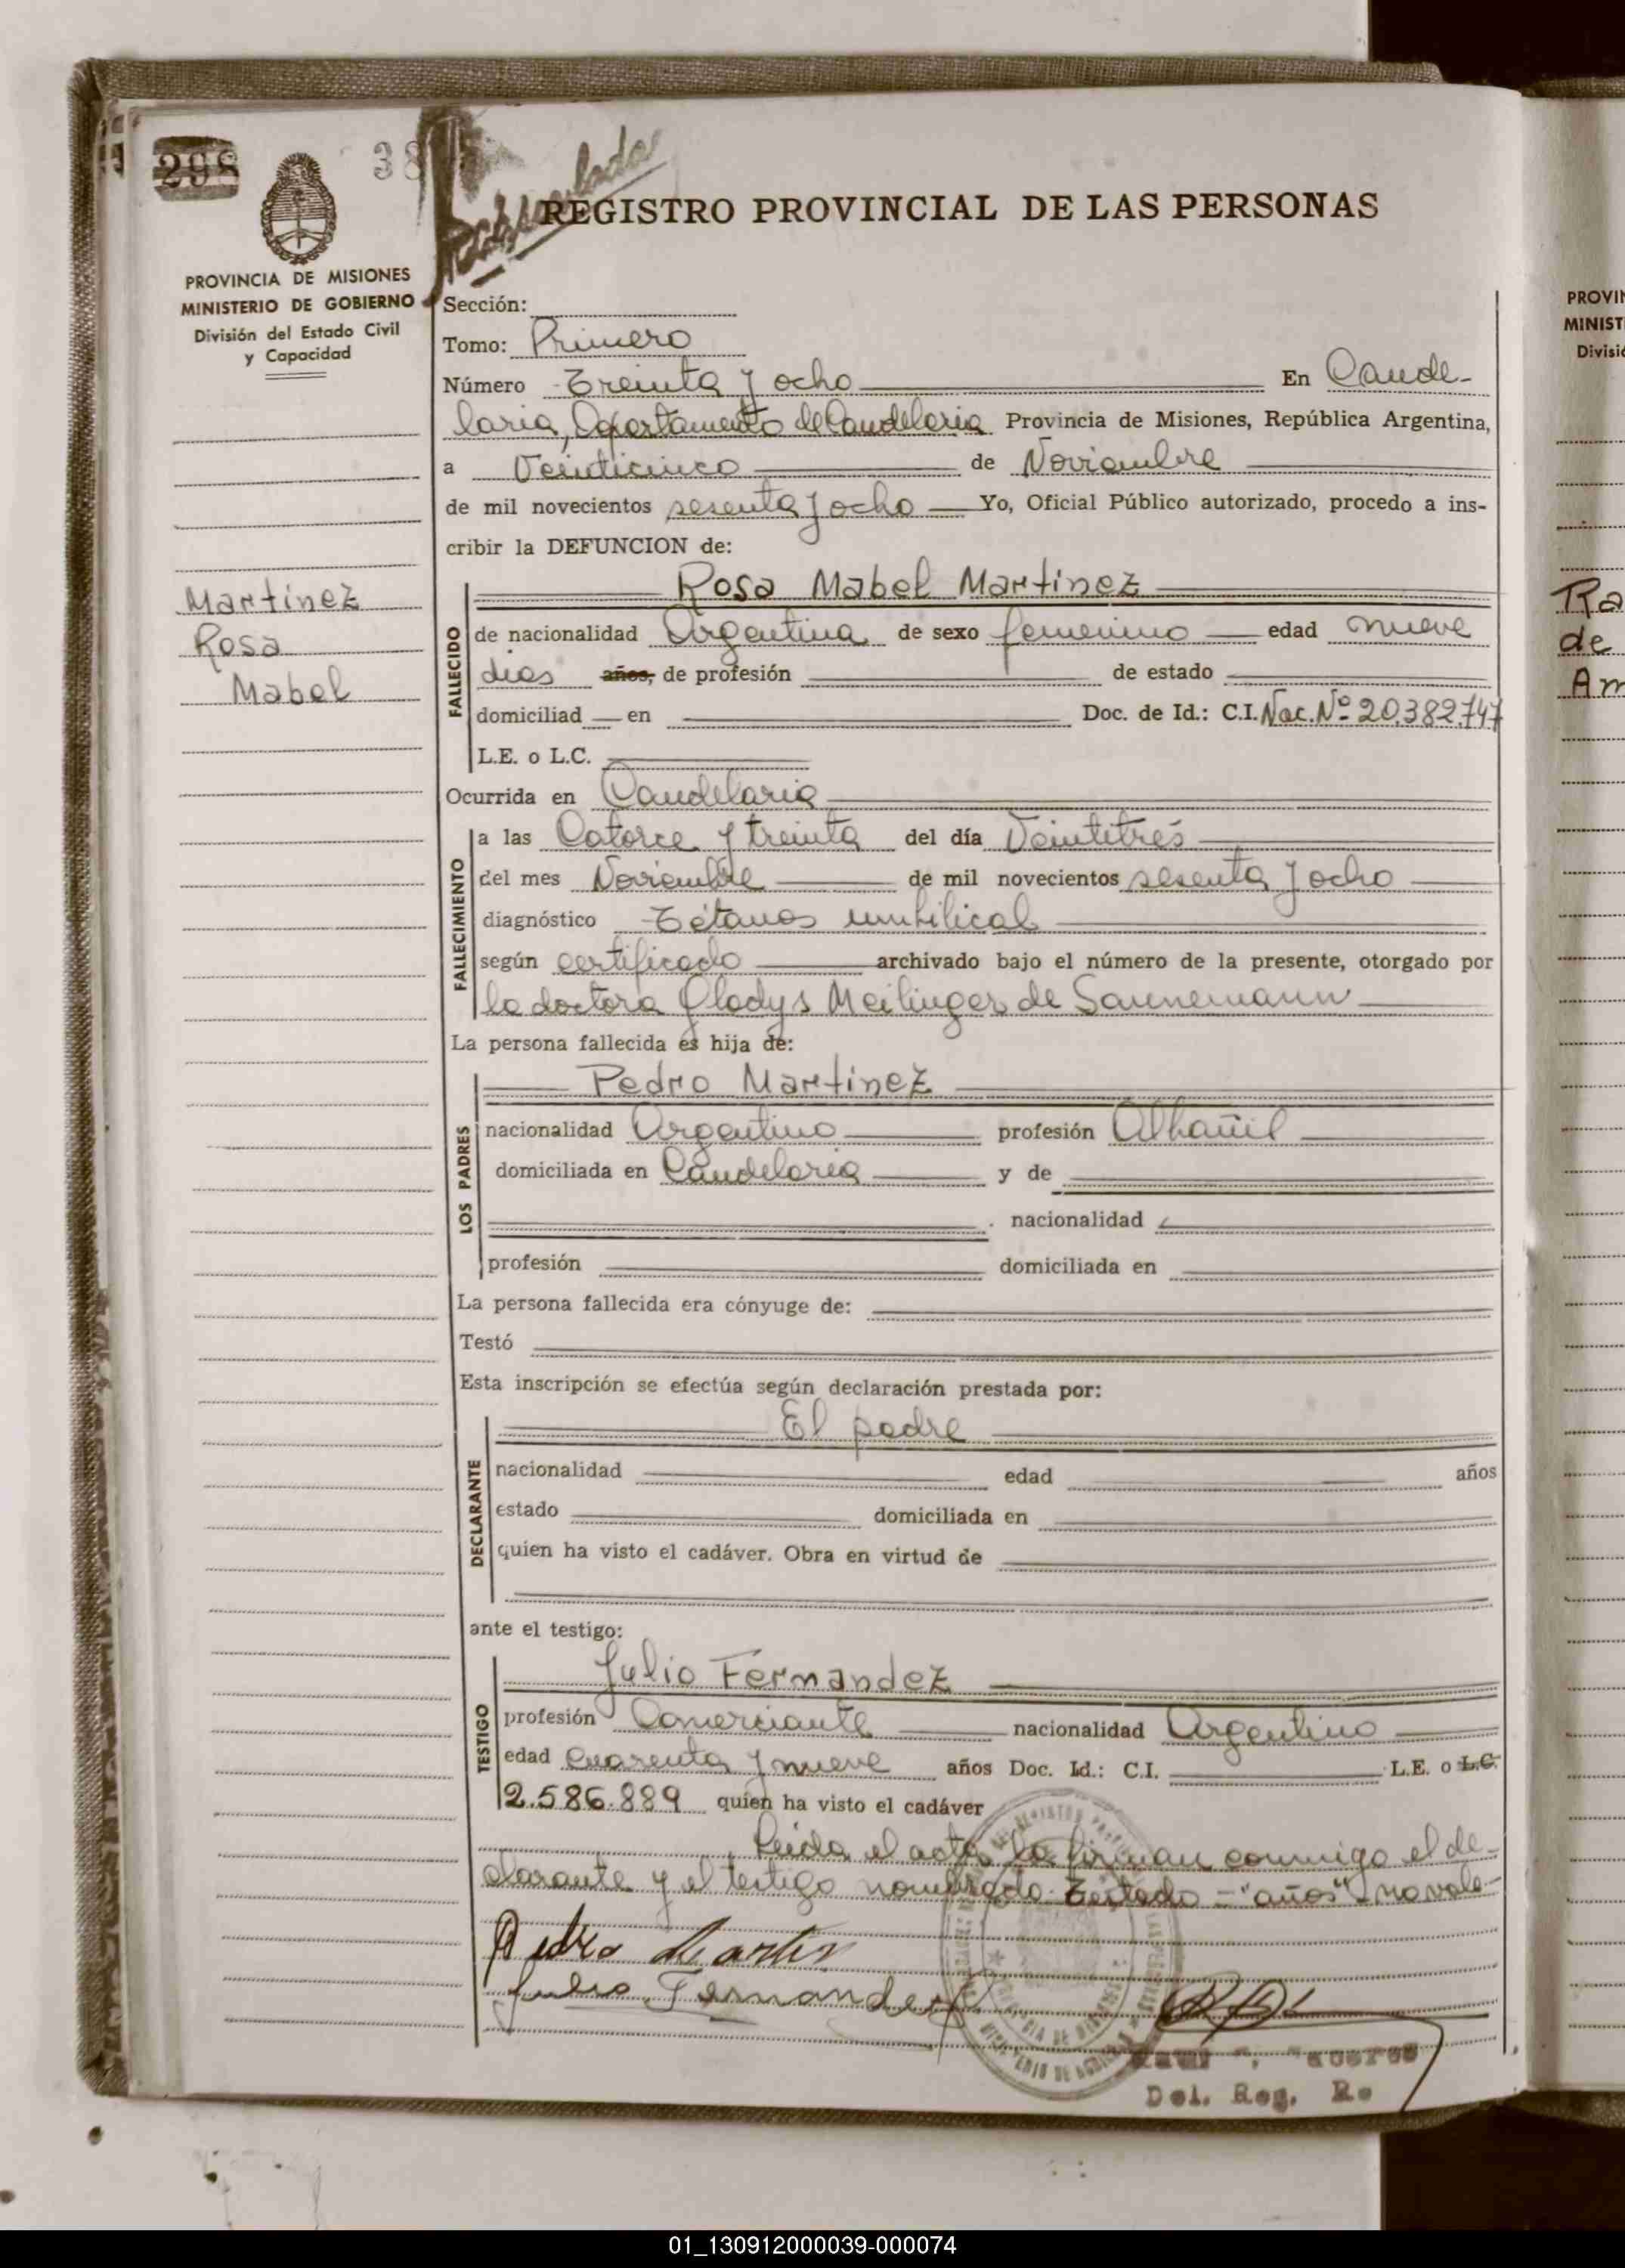 298
38
REGISTRO PROVINCIAL DE LAS PERSONAS
PROVINCIA DE MISIONES
MINISTERIO DE GOBIERNO
División del Estado Civil
y Capacidad
Martinez
Rosa
Mabel
Sección:
Tomo: Primero
Número Treinta y ocho En Cande-
laria, Departamento de Candelaria Provincia de Misiones, República Argentina,
a Veinticinco de Noviembre
de mil novecientos sesenta y ocho Yo, Oficial Público autorizado, procedo a ins-
cribir la DEFUNCION de:
FALLECIDO
Rosa Mabel Martinez
de nacionalidad Argentina de sexo femenino edad nueve
dias años, de profesión de estado
domiciliad en Doc. de Id.: C.I. Nac. Nº 20.382.747
L.E. o L.C.
Ocurrida en Candelaria
FALLECIMIENTO
a las Catorce y treinta del día Veintitrés
del mes Noviembre de mil novecientos sesenta y ocho
diagnóstico Tétanos umbilical
según certificado archivado bajo el número de la presente, otorgado por
la doctora Gladys Meilinger de Sannemann
La persona fallecida es hija de:
LOS PADRES
Pedro Martinez
nacionalidad Argentino profesión Albañil
domiciliada en Candelaria y de
nacionalidad
profesión domiciliada en
La persona fallecida era cónyuge de:
Testó
Esta inscripción se efectúa según declaración prestada por:
DECLARANTE
El padre
nacionalidad edad años
estado domiciliada en
quien ha visto el cadáver. Obra en virtud de
ante el testigo:
TESTIGO
Julio Fernandez
profesión Comerciante nacionalidad Argentino
edad Cuarenta y nueve años Doc. Id.: C.I. L.E. o L.C.
2.586.889 quien ha visto el cadáver
Leída el acta, la firman conmigo el de-
clarante y el testigo nombrado. Testado - "años" - no vale-
Pedro Martin
Julio Fernandez
Del. Reg.
PROVIN
MINIST
Divisió
Ra
de
Am
01_130912000039-000074